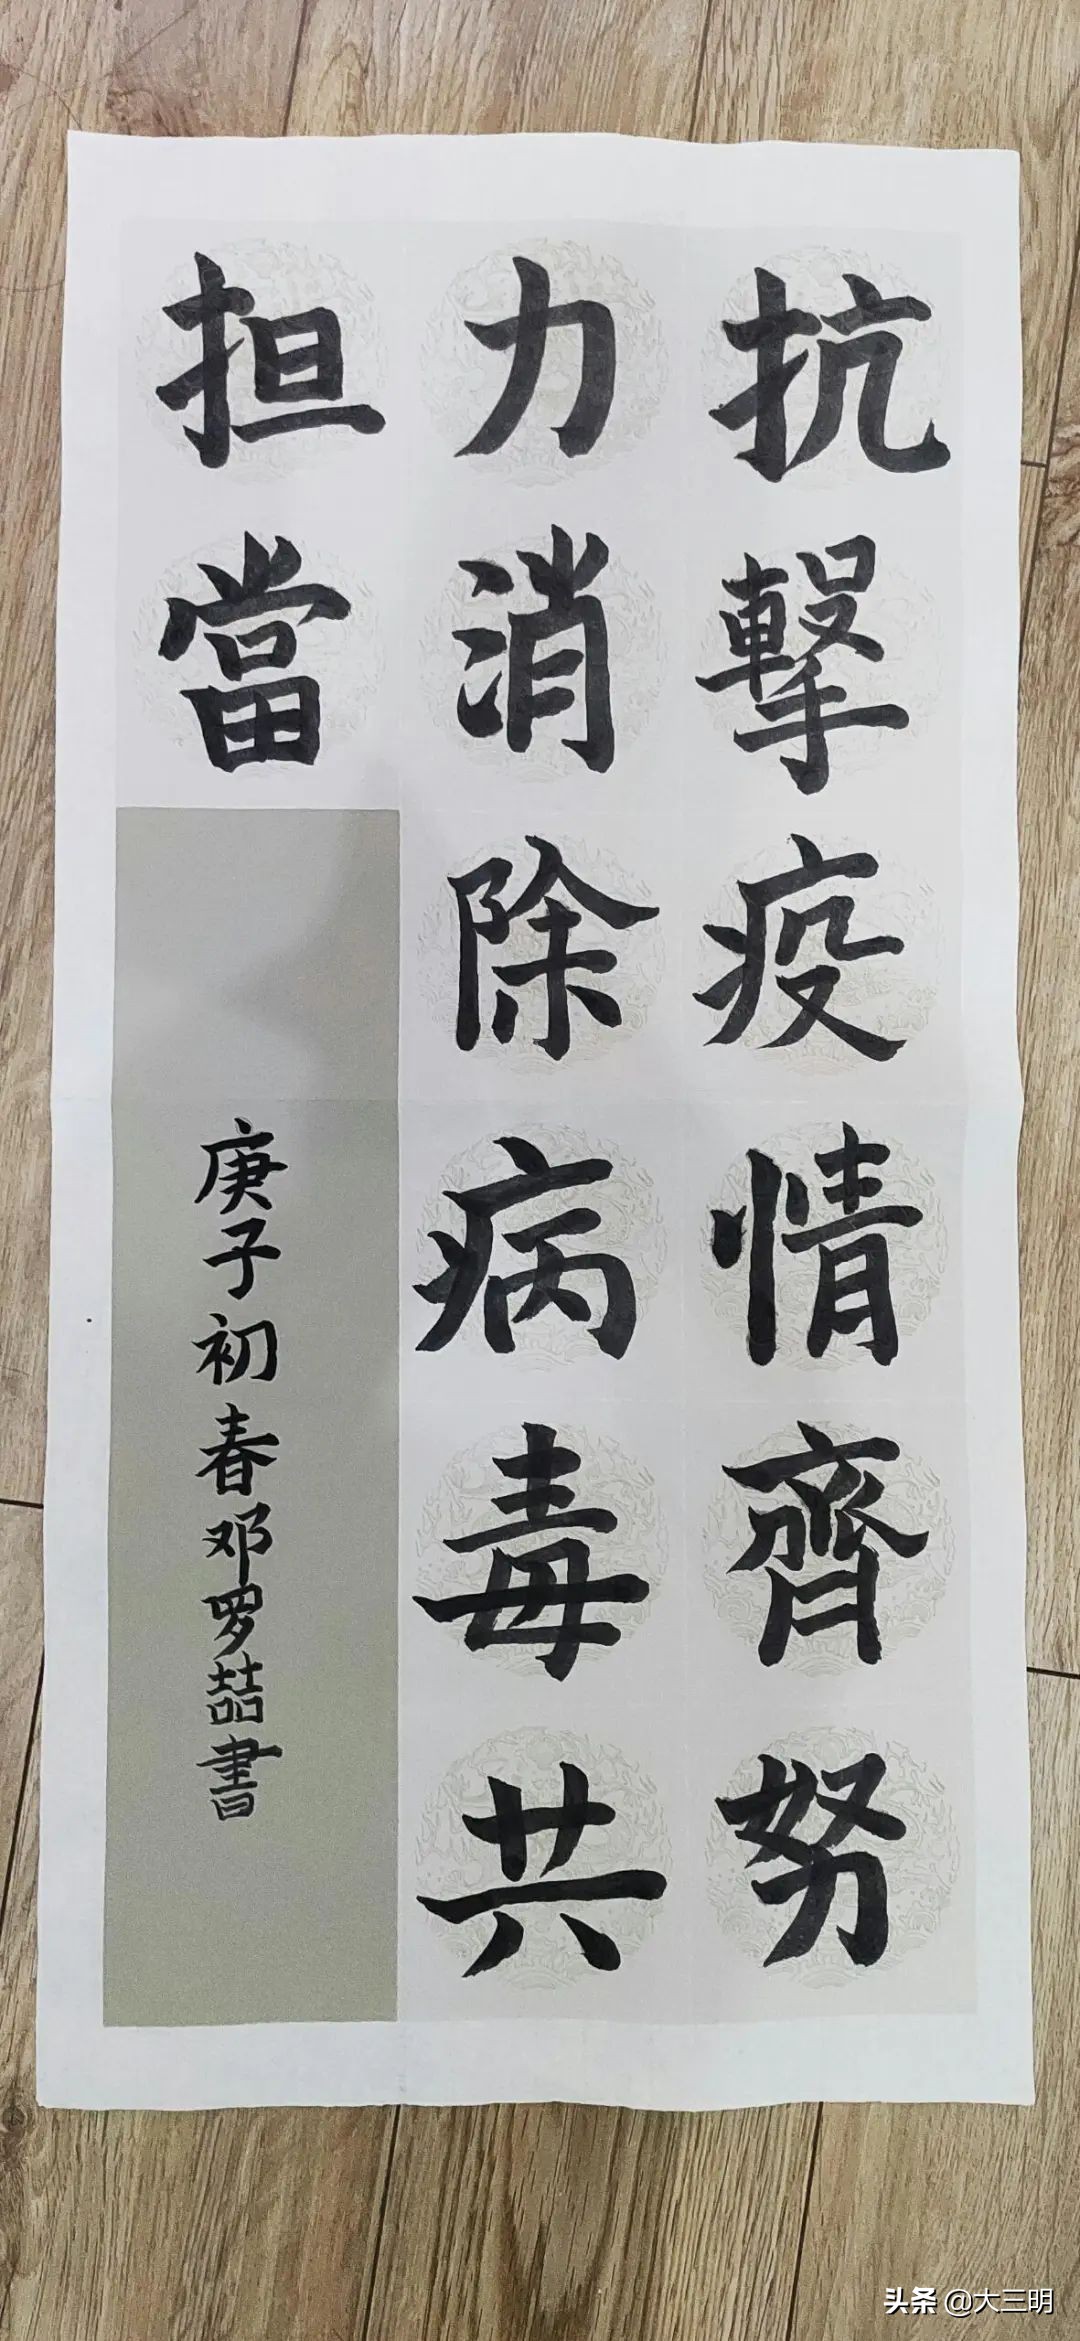 抗擊疫情齊努
力消除病毒共
担當
庚子初春邓罗喆書
头条 @大三明